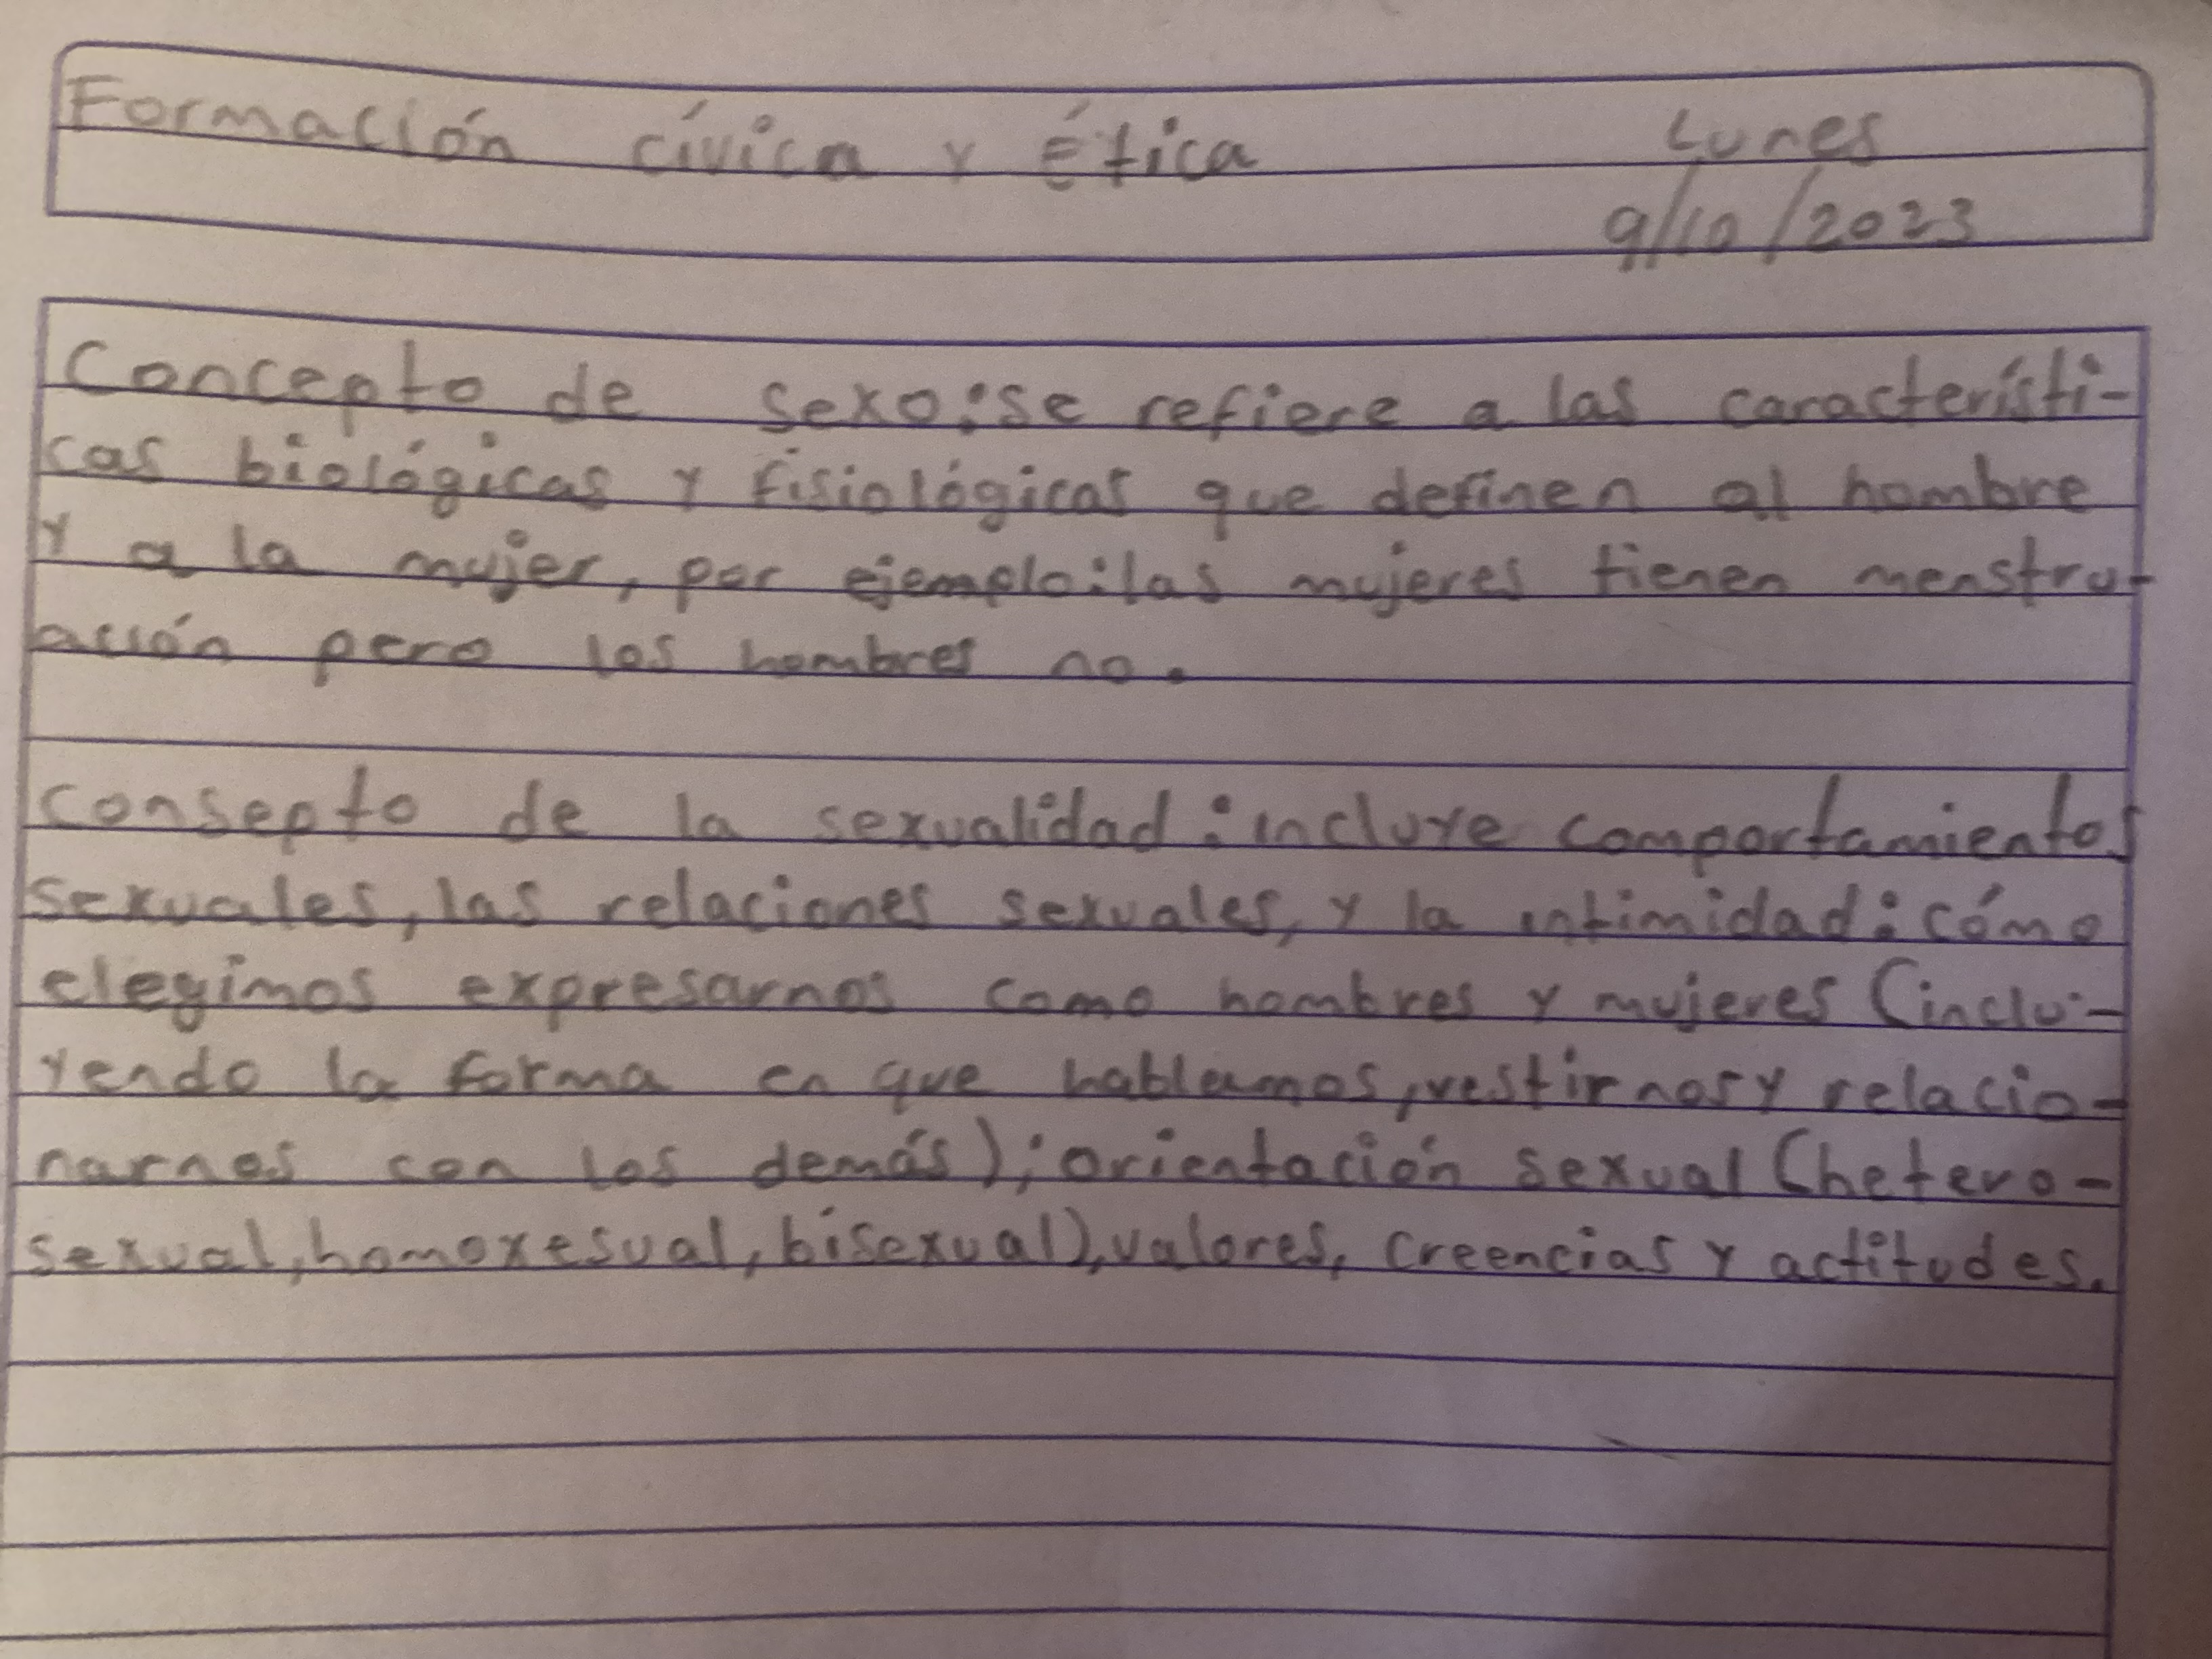 Formación cívica y Ética Lunes
9/10/2023
Concepto de sexo:se refiere a las característi-
cas biológicas y fisiológicas que definen al hombre
y a la mujer, por ejemplo:las mujeres tienen menstru-
ación pero los hombres no.
Consepto de la sexualidad: incluye comportamientos
sexuales, las relaciones sexuales, y la intimidad: cómo
elegimos expresarnos como hombres y mujeres (inclu-
yendo la forma en que hablamos, vestirnos y relacio-
narnos con los demás); orientación sexual (hetero-
sexual, homoxesual, bisexual), valores, creencias y actitudes.